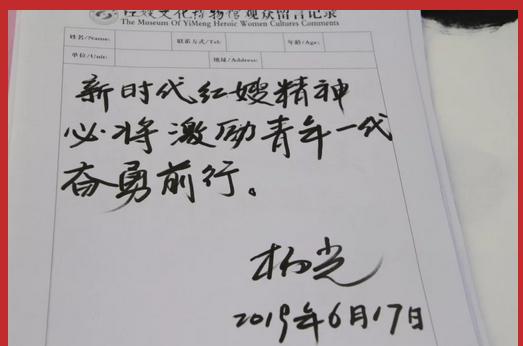 红嫂文化博物馆观众留言记录
The Museum Of YiMeng Heroic Women Cultures Comments
姓名/Name: 联系方式/Tel: 年龄/Age:
单位/Unit: 地址/Address:
新时代红嫂精神
必将激励青年一代
奋勇前行。
杨光
2019年6月17日